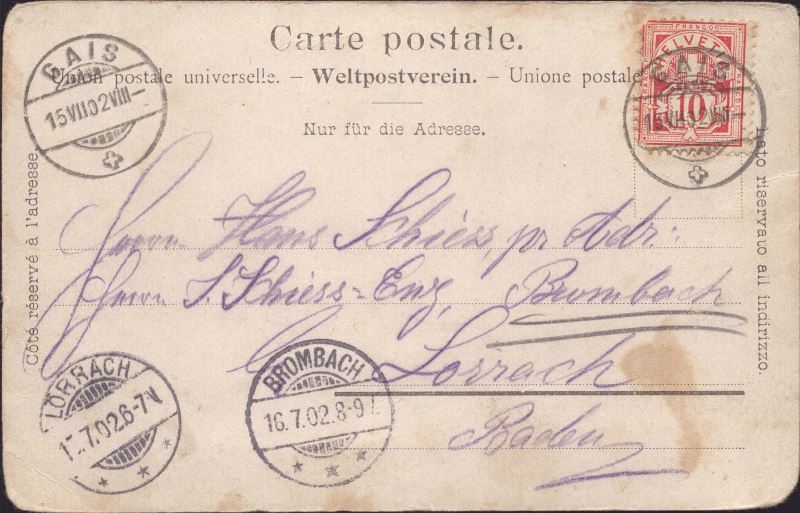 Carte postale.
Union postale universelle. – Weltpostverein. – Unione postale
Nur für die Adresse.
Côté réservé à l'adresse.
Lato riservato all indirizzo.
FRANCO
HELVETIA
10
GAIS
15 VII 02 VIII–
GAIS
15 VII 02 VIII–
Herrn Hans Schiess, pr Adr:
Herrn S. Schiess-Enz, Brombach
b/ Lörrach
Baden
LÖRRACH
7.02.6-7N
BROMBACH
16.7.02.8-9